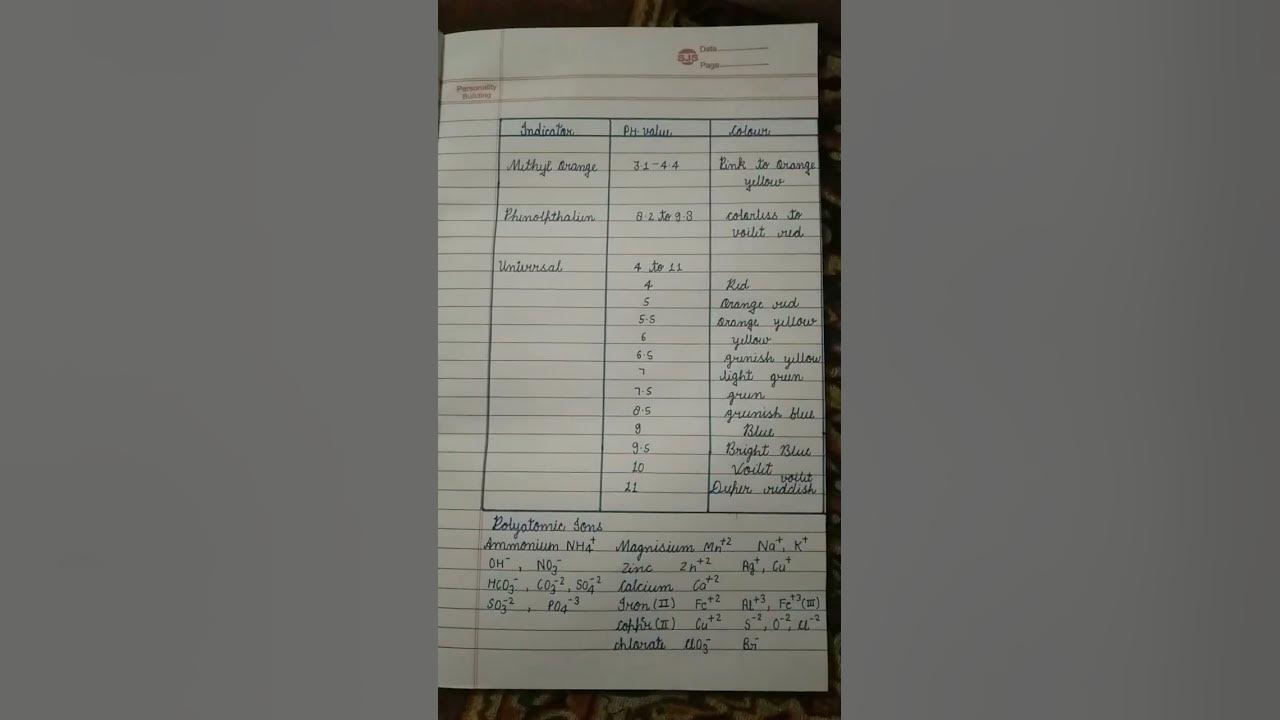 SJS Date
Page
Personality
Building
Indicator PH. value Colour
Methyl Orange 3.1-4.4 Pink to Orange
yellow
Phenolpthalien 8.2 to 9.8 colorless to
voilet red
Universal 4 to 11
4 Red
5 Orange red
5.5 Orange yellow
6 yellow
6.5 greenish yellow
7 light green
7.5 green
8.5 greenish blue
9 Blue
9.5 Bright Blue
10 Voilet
voilet
11 Deeper reddish
Polyatomic Ions
Ammonium NH₄⁺ Magnesium Mn⁺² Na⁺, K⁺
OH⁻, NO₃⁻ Zinc Zn⁺² Ag⁺, Cu⁺
HCO₃⁻, CO₃⁻², SO₄⁻² Calcium Ca⁺²
SO₃⁻², PO₄⁻³ Iron (II) Fe⁺² Al⁺³, Fe⁺³(III)
copper (II) Cu⁺² S⁻², O⁻², Cl⁻²
chlorate ClO₃⁻ Br⁻